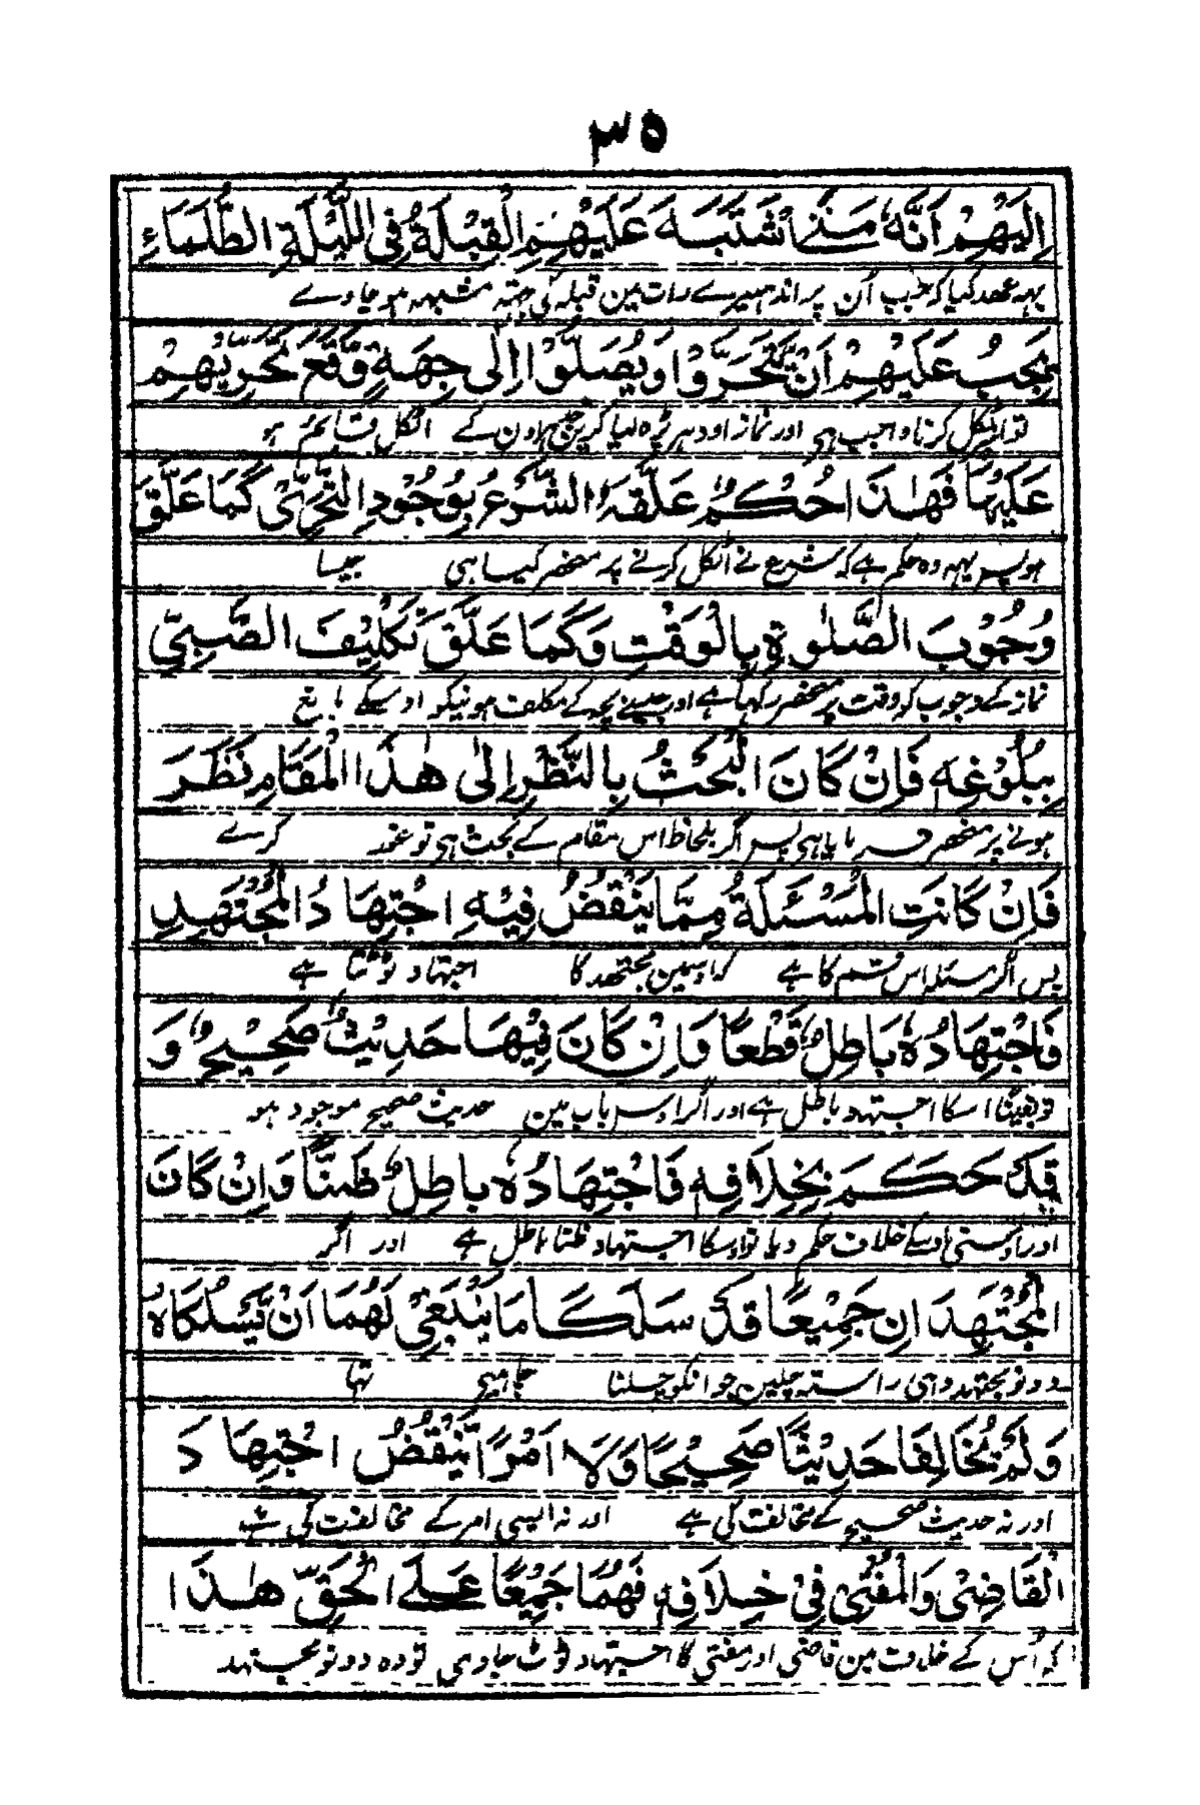 ٣٥
اِلَيْهِمْ اَنَّهٗ مَتٰى اشْتَبَهَ عَلَيْهِمِ الْقِبْلَةُ فِى اللَّيْلَةِ الظَّلْمَاءِ
یہہ عہد کیا کہ جب اُن پر اندھیرے رات مین قبلہ کی جہتہ مشتبہہ ہو جاوے
يَجِبُ عَلَيْهِمْ اَنْ يَّتَحَرَّوْا وَيُصَلُّوْا اِلٰى جِهَةٍ وَقَعَ تَحَرِّيْهِمْ
تو اٹکل کرنا واجب ہی اور نماز اودہر پڑہ لیا کرین جدہر اون کے اٹکل قائم ہو
عَلَيْهَا فَهٰذَا حُكْمٌ عَلَّقَهُ الشَّرْعُ بِوُجُوْدِ التَّحَرِّىْ كَمَا عَلَّقَ
ہو پس یہہ وہ حکم ہے کہ شرع نے اٹکل کرنے پر منحصر کیا ہی جیسا
وُجُوْبَ الصَّلٰوةِ بِالْوَقْتِ وَكَمَا عَلَّقَ تَكْلِيْفَ الصَّبِىِّ
نماز کے وجوب کو وقت پر منحصر رکہا ہے اور جیسے بچہ کے مکلف ہونیکو اوسکے بالغ
بِبُلُوْغِهٖ فَاِنْ كَانَ الْبَحْثُ بِالنَّظْرِ اِلٰى هٰذَا الْمَقَامِ نَظَرَ
ہونے پر منحصر فرمایا ہی پس اگر بلحاظ اس مقام کے بحث ہی تو غور کرے
فَاِنْ كَانَتِ الْمَسْئَلَةُ مِمَّا يَنْقُضُ فِيْهِ اجْتِهَادُ الْمُجْتَهِدِ
پس اگر مسئلہ اس قسم کا ہے کہ اوسمین مجتہد کا اجتہاد ٹوٹتا ہے
فَاجْتِهَادُهٗ بَاطِلٌ قَطْعًا وَاِنْ كَانَ فِيْهَا حَدِيْثٌ صَحِيْحٌ وَ
تو یقینًا اسکا اجتہاد باطل ہے اور اگر اوس باب مین حدیث صحیح موجود ہو
قَدْ حَكَمَ بِخِلَافِهٖ فَاجْتِهَادُهٗ بَاطِلٌ ظَنًّا وَاِنْ كَانَ
اور اوسنی اوسکے خلاف حکم دیا تو اوسکا اجتہاد ظنًا باطل ہے اور اگر
الْمُجْتَهِدَانِ جَمِيْعًا قَدْ سَلَكَا مَا يَنْبَغِىْ لَهُمَا اَنْ يَّسْلُكَاهُ
دونو مجتہد وہی راستہ چلین جو انکو چلنا چاہیے تہا
وَلَمْ يُخَالِفَا حَدِيْثًا صَحِيْحًا وَلَا اَمْرًا يَّنْقُضُ اجْتِهَادَ
اور نہ حدیث صحیح کے مخالفت کی ہے اور نہ ایسی امر کے مخالفت کی ہے
الْقَاضِىْ وَالْمُفْتِىْ فِىْ خِلَافِهٖ فَهُمَا جَمِيْعًا عَلَى الْحَقِّ هٰذَا
کہ اُس کے خلاف مین قاضی اور مفتی کا اجتہاد ٹوٹ جاوی تو وہ دونو مجتہد